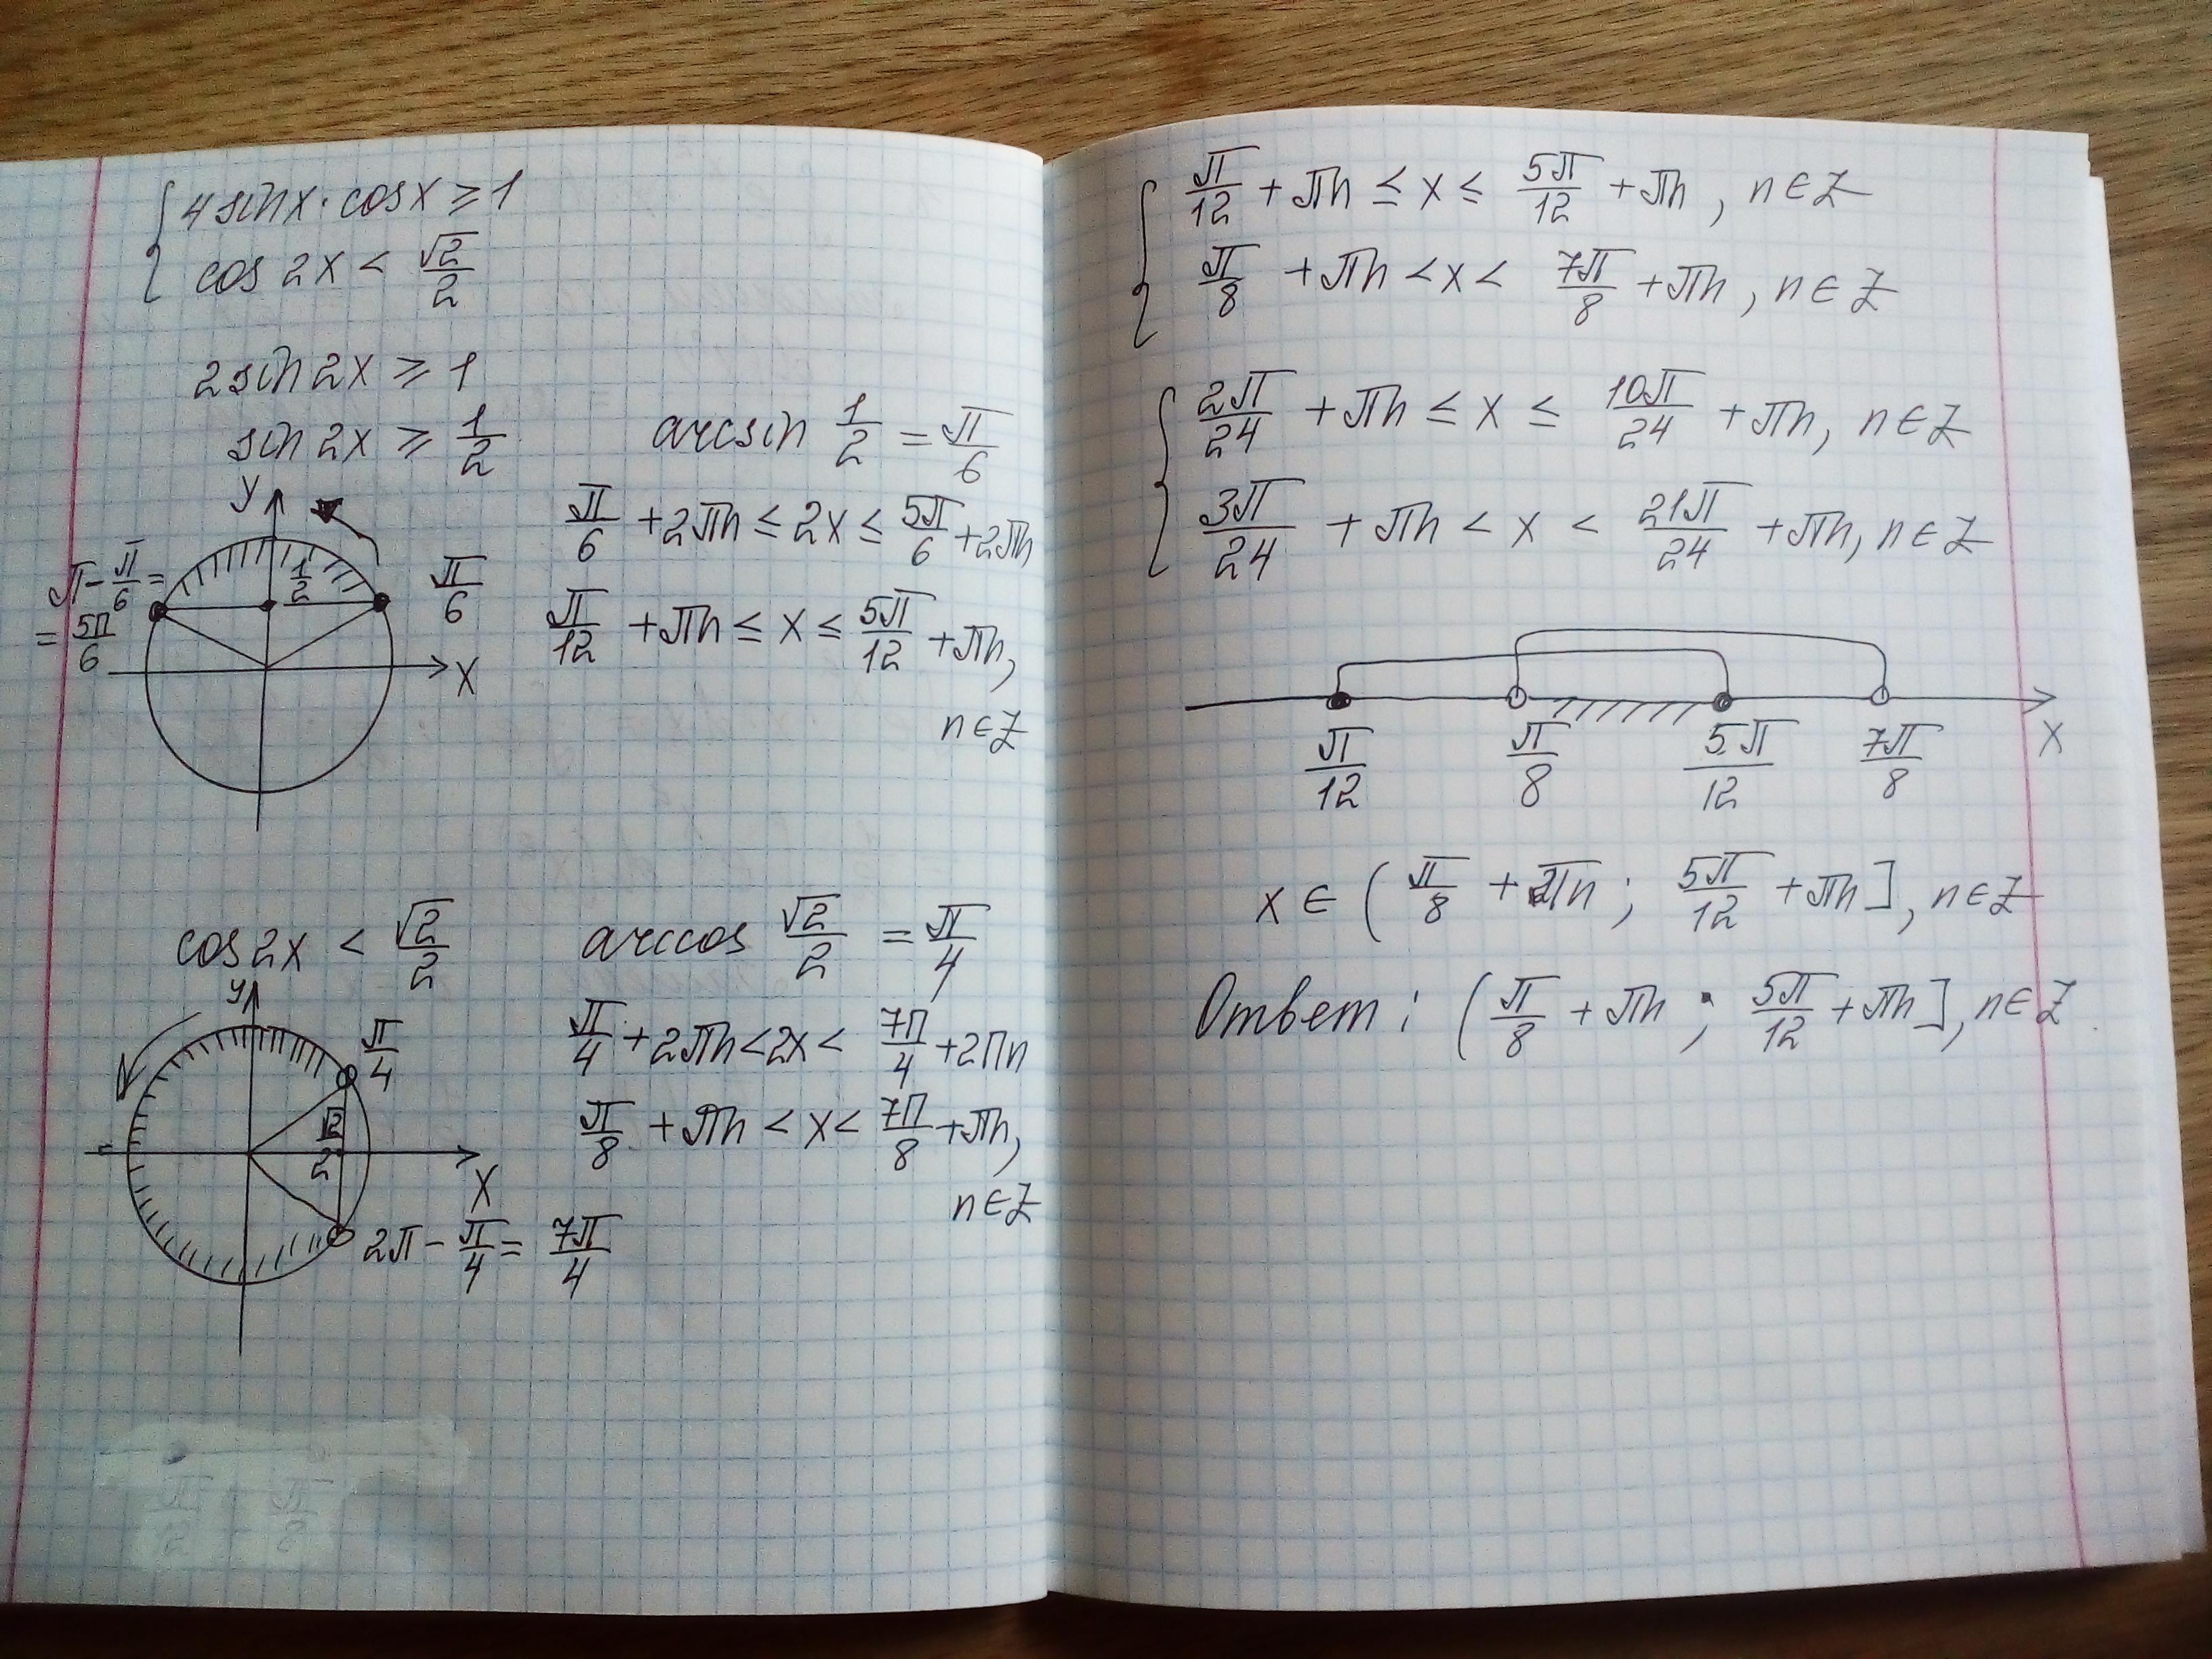 4 sin x · cos x ≥ 1
cos 2x < √2/2
2 sin 2x ≥ 1
sin 2x ≥ 1/2
arcsin 1/2 = π/6
π/6 + 2πn ≤ 2x ≤ 5π/6 + 2πn
π/12 + πn ≤ x ≤ 5π/12 + πn,
n ∈ Z
y
1/2
π/6
π - π/6 =
= 5π/6
x
cos 2x < √2/2
arccos √2/2 = π/4
π/4 + 2πn < 2x < 7π/4 + 2πn
π/8 + πn < x < 7π/8 + πn,
n ∈ Z
y
π/4
√2/2
x
2π - π/4 = 7π/4
π/12 + πn ≤ x ≤ 5π/12 + πn, n ∈ Z
π/8 + πn < x < 7π/8 + πn, n ∈ Z
2π/24 + πn ≤ x ≤ 10π/24 + πn, n ∈ Z
3π/24 + πn < x < 21π/24 + πn, n ∈ Z
π/12 π/8 5π/12 7π/8 x
x ∈ ( π/8 + πn ; 5π/12 + πn ], n ∈ Z
Ответ: ( π/8 + πn ; 5π/12 + πn ], n ∈ Z.